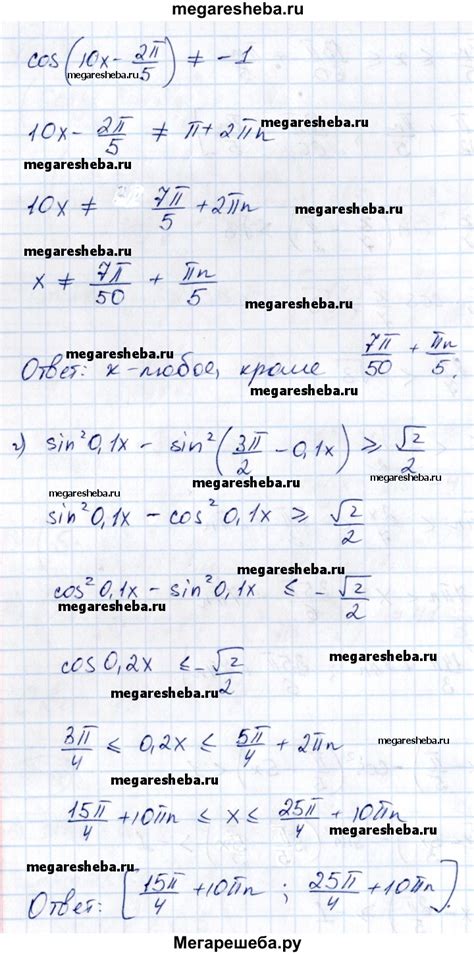 megaresheba.ru
cos(10x - 2π/5) ≠ -1
megaresheba.ru megaresheba.ru
megaresheba.ru
10x - 2π/5 ≠ π + 2πn
megaresheba.ru
10x ≠ 7π/5 + 2πn
megaresheba.ru
megaresheba.ru
x ≠ 7π/50 + πn/5
megaresheba.ru
megaresheba.ru
Ответ: x - любое, кроме 7π/50 + πn/5.
megaresheba.ru
megaresheba.ru
г) sin²0,1x - sin²(3π/2 - 0,1x) ⩾ √2/2
megaresheba.ru
megaresheba.ru
sin²0,1x - cos²0,1x ⩾ √2/2
megaresheba.ru
cos²0,1x - sin²0,1x ⩽ -√2/2
megaresheba.ru
megaresheba.ru
cos0,2x ⩽ -√2/2
megaresheba.ru
3π/4 ⩽ 0,2x ⩽ 5π/4 + 2πn
megaresheba.ru
megaresheba.ru
15π/4 + 10πn ⩽ x ⩽ 25π/4 + 10πn
megaresheba.ru
megaresheba.ru
Ответ: [15π/4 + 10πn ; 25π/4 + 10πn].
megaresheba.ru
Мегарешеба.ру